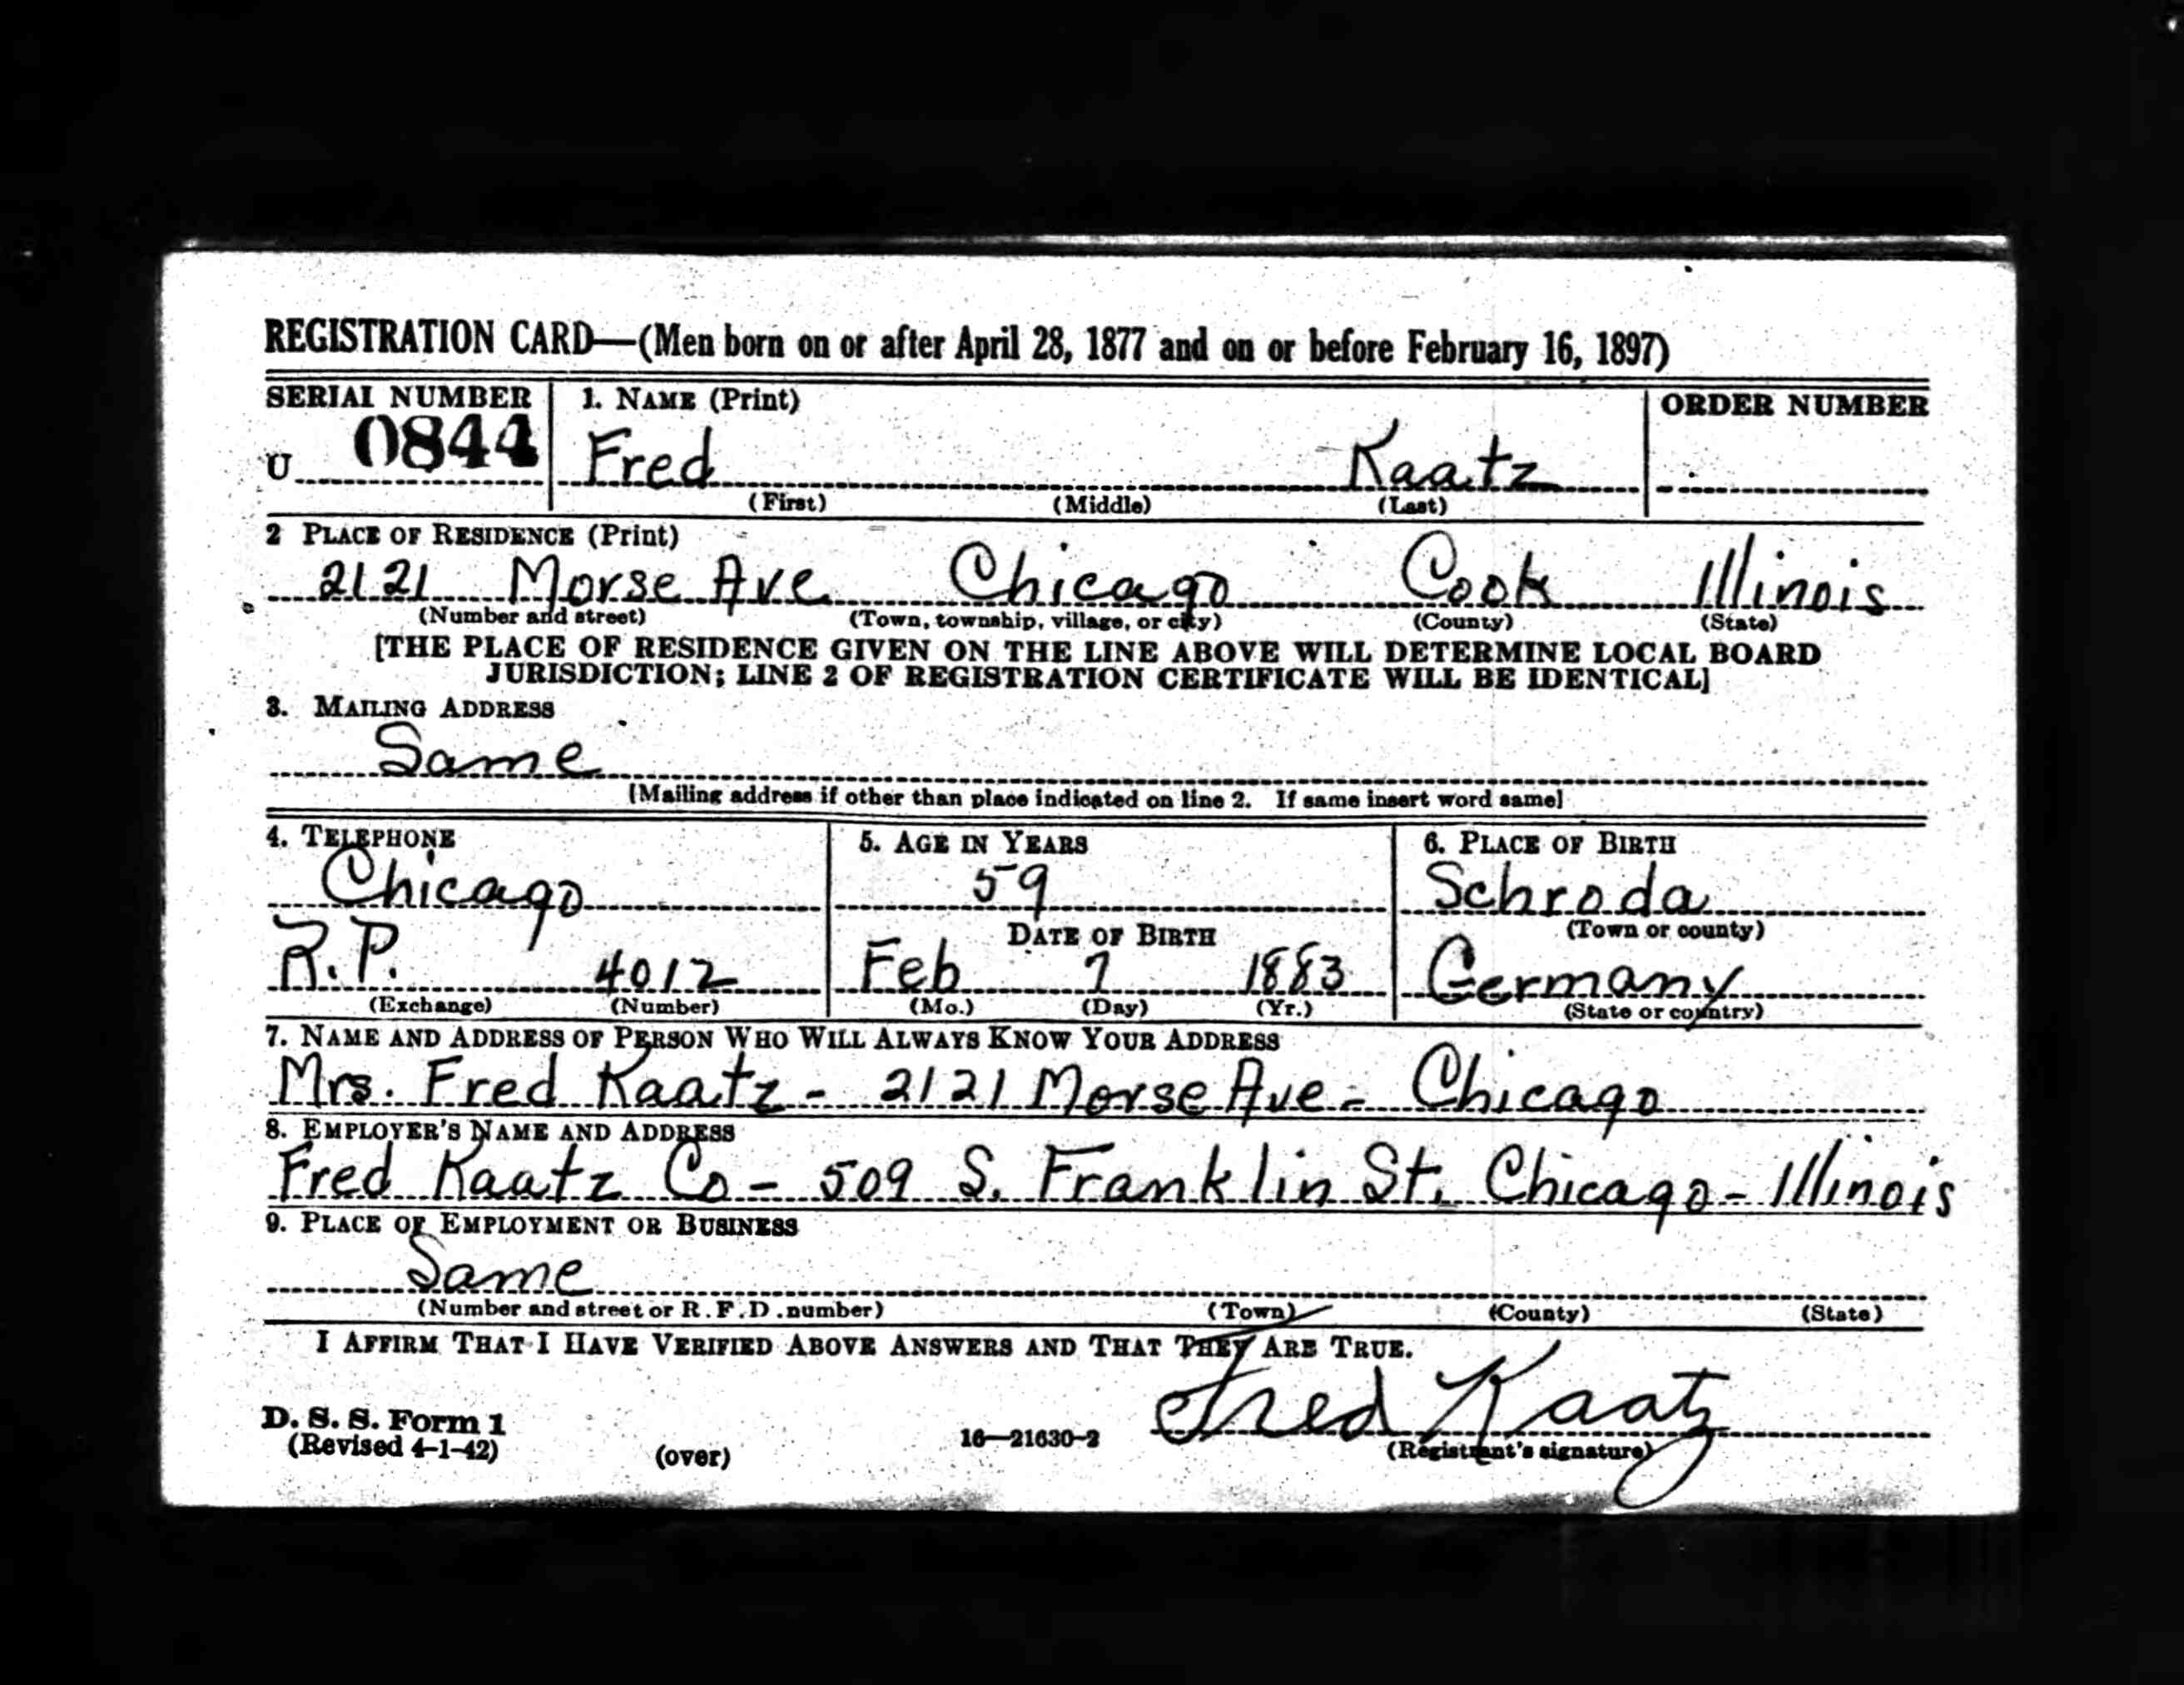 REGISTRATION CARD—(Men born on or after April 28, 1877 and on or before February 16, 1897)
SERIAL NUMBER 1. NAME (Print) ORDER NUMBER
U 0844 Fred Kaatz
(First) (Middle) (Last)
2 PLACE OF RESIDENCE (Print)
2121 Morse Ave Chicago Cook Illinois
(Number and street) (Town, township, village, or city) (County) (State)
[THE PLACE OF RESIDENCE GIVEN ON THE LINE ABOVE WILL DETERMINE LOCAL BOARD
JURISDICTION; LINE 2 OF REGISTRATION CERTIFICATE WILL BE IDENTICAL]
3. MAILING ADDRESS
Same
[Mailing address if other than place indicated on line 2. If same insert word same]
4. TELEPHONE 5. AGE IN YEARS 6. PLACE OF BIRTH
Chicago 59 Schroda
DATE OF BIRTH (Town or county)
R.P. 4012 Feb 7 1883 Germany
(Exchange) (Number) (Mo.) (Day) (Yr.) (State or country)
7. NAME AND ADDRESS OF PERSON WHO WILL ALWAYS KNOW YOUR ADDRESS
Mrs. Fred Kaatz - 2121 Morse Ave - Chicago
8. EMPLOYER'S NAME AND ADDRESS
Fred Kaatz Co - 509 S. Franklin St. Chicago - Illinois
9. PLACE OF EMPLOYMENT OR BUSINESS
Same
(Number and street or R.F.D. number) (Town) (County) (State)
I AFFIRM THAT I HAVE VERIFIED ABOVE ANSWERS AND THAT THEY ARE TRUE.
Fred Kaatz
D. S. S. Form 1
(Revised 4-1-42) (over) 16—21630-2 (Registrant's signature)